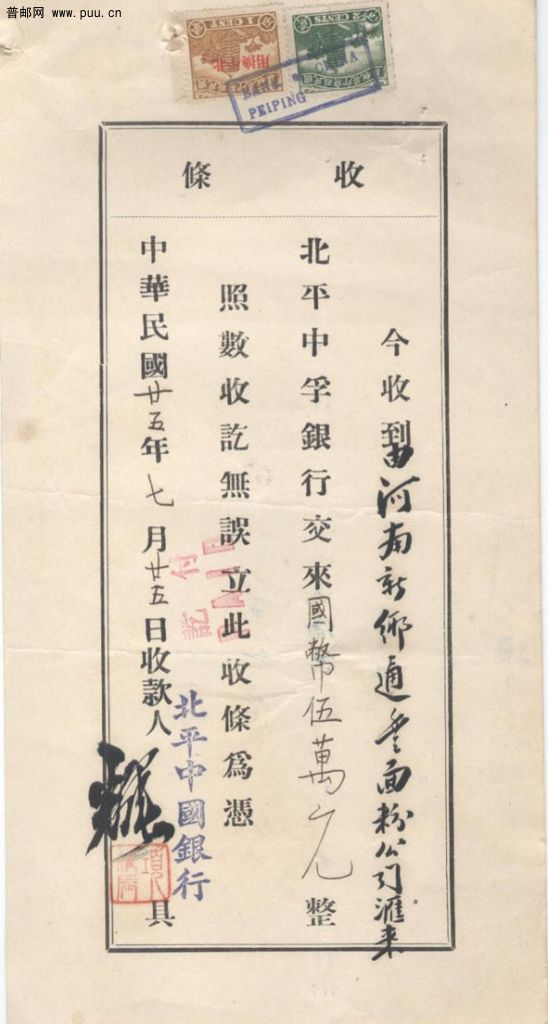 普邮网 www.puu.cn
1 CENT
2 CENTS
北平
BANK OF CHINA
PEIPING
收條
今收到由河南新鄉通豐面粉公司滙来
北平中孚銀行交來國幣伍萬元整
照數收訖無誤立此收條爲憑
付訖
PAID
中華民國廿五年七月廿五日收款人 具
北平中國銀行